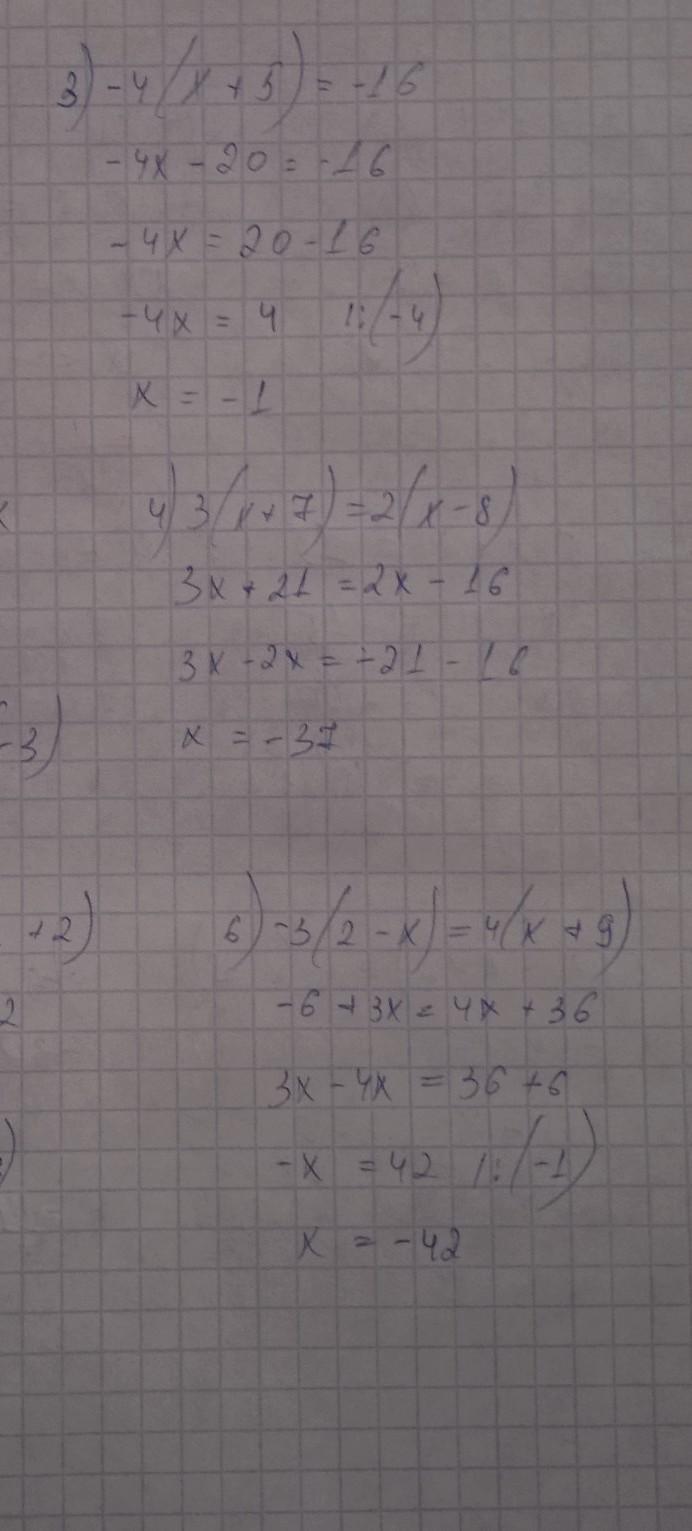 3) -4(x+5) = -16
-4x - 20 = -16
-4x = 20 - 16
-4x = 4 |:(-4)
x = -1
4) 3(x+7) = 2(x-8)
3x + 21 = 2x - 16
3x - 2x = -21 - 16
-3)
x = -37
+2)
6) -3(2-x) = 4(x+9)
2
-6 + 3x = 4x + 36
3x - 4x = 36 + 6
)
-x = 42 |:(-1)
x = -42